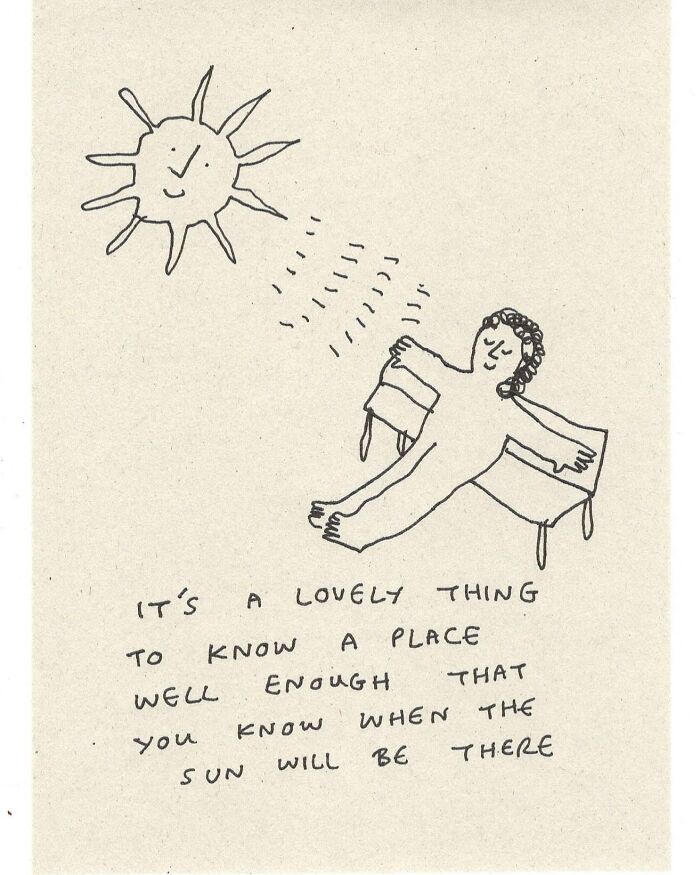 IT'S A LOVELY THING
TO KNOW A PLACE
WELL ENOUGH THAT
YOU KNOW WHEN THE
SUN WILL BE THERE